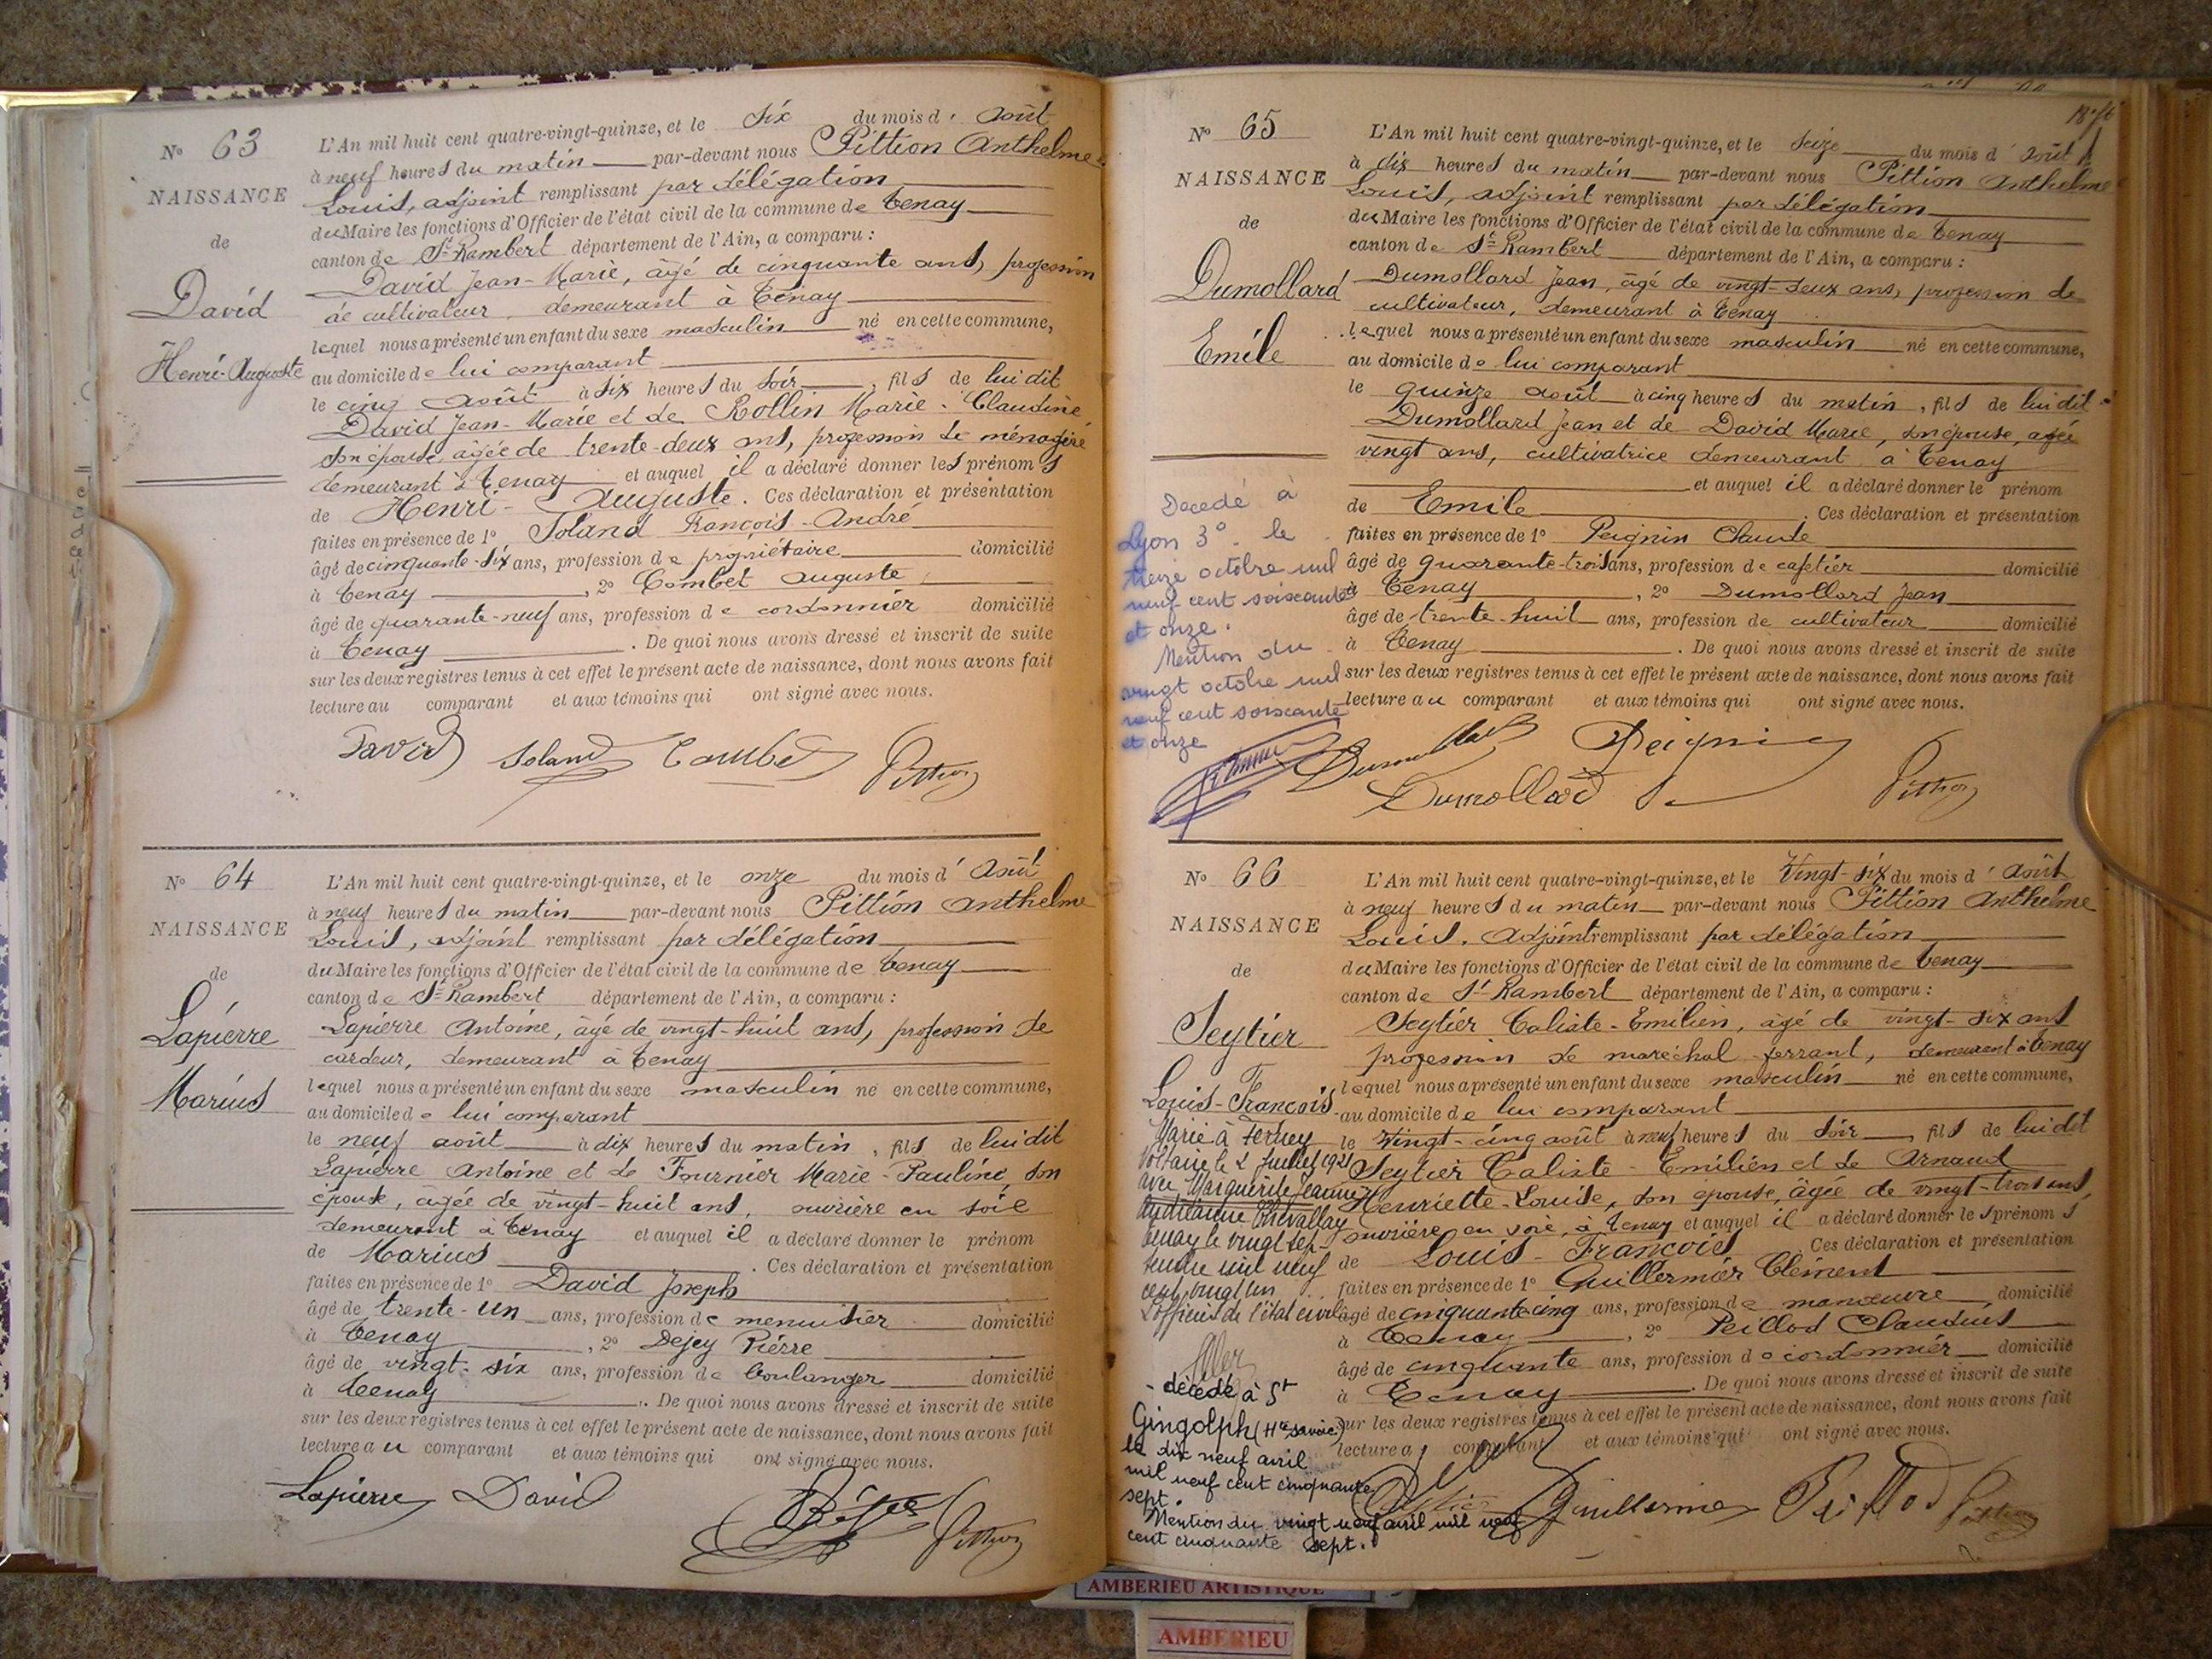 N° 63
NAISSANCE
de
David
Henri-Auguste
L'An mil huit cent quatre-vingt-quinze, et le six du mois d' août
à neuf heures du matin par-devant nous Pittion Anthelme
Louis, adjoint remplissant par délégation
du Maire les fonctions d'Officier de l'état civil de la commune de Tenay
canton de St Rambert département de l'Ain, a comparu :
David Jean-Marie, âgé de cinquante ans, profession
de cultivateur, demeurant à Tenay
lequel nous a présenté un enfant du sexe masculin né en cette commune,
au domicile de lui comparant
le cinq août à six heures du soir, fils de lui dit
David Jean-Marie et de Rollin Marie-Claudine
son épouse, âgée de trente-deux ans, profession de ménagère
demeurant à Tenay et auquel il a déclaré donner les prénoms
de Henri-Auguste. Ces déclaration et présentation
faites en présence de 1° Soland François-André
âgé de cinquante-six ans, profession de propriétaire domicilié
à Tenay, 2° Combet Auguste
âgé de quarante-neuf ans, profession de cordonnier domicilié
à Tenay. De quoi nous avons dressé et inscrit de suite
sur les deux registres tenus à cet effet le présent acte de naissance, dont nous avons fait
lecture au comparant et aux témoins qui ont signé avec nous.
David Soland Combet Pittion
N° 64
NAISSANCE
de
Lapierre
Marius
L'An mil huit cent quatre-vingt-quinze, et le onze du mois d' août
à neuf heures du matin par-devant nous Pittion Anthelme
Louis, adjoint remplissant par délégation
du Maire les fonctions d'Officier de l'état civil de la commune de Tenay
canton de St Rambert département de l'Ain, a comparu :
Lapierre Antoine, âgé de vingt-huit ans, profession de
cardeur, demeurant à Tenay
lequel nous a présenté un enfant du sexe masculin né en cette commune,
au domicile de lui comparant
le neuf août à dix heures du matin, fils de lui dit
Lapierre Antoine et de Fournier Marie-Pauline, son
épouse, âgée de vingt-huit ans, ouvrière en soie
demeurant à Tenay et auquel il a déclaré donner le prénom
de Marius. Ces déclaration et présentation
faites en présence de 1° David Joseph
âgé de trente-un ans, profession de menuisier domicilié
à Tenay, 2° Dejey Pierre
âgé de vingt-six ans, profession de boulanger domicilié
à Tenay. De quoi nous avons dressé et inscrit de suite
sur les deux registres tenus à cet effet le présent acte de naissance, dont nous avons fait
lecture au comparant et aux témoins qui ont signé avec nous.
Lapierre David Pittion
N° 65
NAISSANCE
de
Dumollard
Emile
L'An mil huit cent quatre-vingt-quinze, et le seize du mois d' août
à dix heures du matin par-devant nous Pittion Anthelme
Louis, adjoint remplissant par délégation
du Maire les fonctions d'Officier de l'état civil de la commune de Tenay
canton de St Rambert département de l'Ain, a comparu :
Dumollard Jean, âgé de vingt-deux ans, profession de
cultivateur, demeurant à Tenay
lequel nous a présenté un enfant du sexe masculin né en cette commune,
au domicile de lui comparant
le quinze août à cinq heures du matin, fils de lui dit
Dumollard Jean et de David Marie, son épouse, agée
vingt ans, cultivatrice demeurant à Tenay
et auquel il a déclaré donner le prénom
de Emile. Ces déclaration et présentation
faites en présence de 1° Peignin Claude
âgé de quarante-trois ans, profession de cafetier domicilié
à Tenay, 2° Dumollard Jean
âgé de trente-huit ans, profession de cultivateur domicilié
à Tenay. De quoi nous avons dressé et inscrit de suite
sur les deux registres tenus à cet effet le présent acte de naissance, dont nous avons fait
lecture au comparant et aux témoins qui ont signé avec nous.
Decedé à
Lyon 3° le
treize octobre mil
neuf cent soixante
et onze.
Mention du
vingt octobre mil
neuf cent soixante
et onze
Dumollard Peignin
Dumollard Pittion
N° 66
NAISSANCE
de
Seytier
Louis-François
L'An mil huit cent quatre-vingt-quinze, et le Vingt-six du mois d' août
à neuf heures du matin par-devant nous Pittion Anthelme
Louis, Adjoint remplissant par délégation
du Maire les fonctions d'Officier de l'état civil de la commune de Tenay
canton de St Rambert département de l'Ain, a comparu :
Seytier Caliste-Emilien, âgé de vingt-six ans
profession de maréchal-ferrant, demeurant à Tenay
lequel nous a présenté un enfant du sexe masculin né en cette commune,
au domicile de lui comparant
le vingt-cinq août à neuf heures du soir, fils de lui dit
Seytier Caliste-Emilien et de Arnaud
Henriette-Louise, son épouse, âgée de vingt-trois ans,
ouvrière en soie, à Tenay et auquel il a déclaré donner les prénoms
de Louis-François Ces déclaration et présentation
faites en présence de 1° Guillermier Clément
âgé de cinquante cinq ans, profession de manœuvre domicilié
à Tenay, 2° Peillod Claudius
âgé de cinquante ans, profession de cordonnier domicilié
à Tenay. De quoi nous avons dressé et inscrit de suite
sur les deux registres tenus à cet effet le présent acte de naissance, dont nous avons fait
lecture au comparant et aux témoins qui ont signé avec nous.
Marié à Ferney
Voltaire le 2 Juillet 1921
avec Marguerite Jeanne
Chevallay
Tenay le vingt sep-
tembre mil neuf
cent vingt un
L'officier de l'état civil
décédé à St
Gingolph (Hte Savoie)
le dix neuf avril
mil neuf cent cinquante
sept.
Mention du vingt neuf avril mil neuf
cent cinquante sept.
Seytier Guillermier Peillod Pittion
AMBERIEU ARTISTIQUE
AMBERIEU